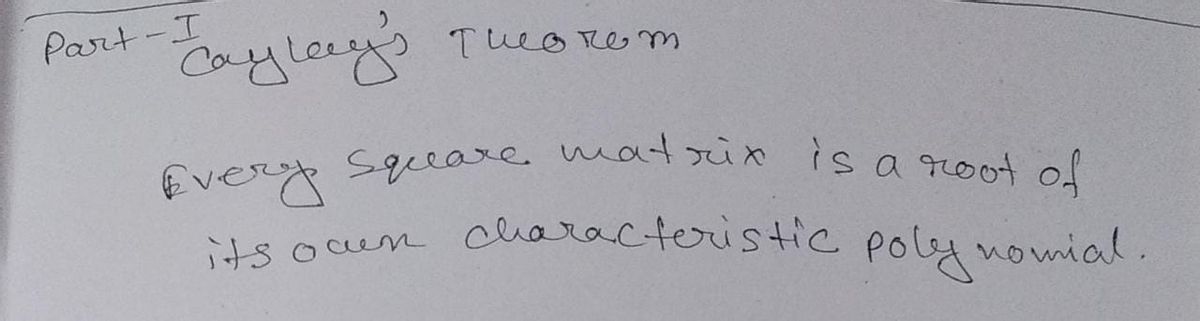 Part-I
Cayley's Theorem
Every square matrix is a root of
its own characteristic polynomial.